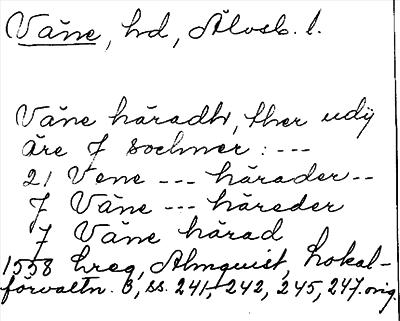 Väne, hd, Älvsb. l.
Väne häradh, ther udij
äre 7 sochner: ---
21 Vene --- härader--
7 Väne --- häreder
7 Väne härad
1558 hreg, Almquist, Lokal-
förvaltn. B, ss. 241, 242, 245, 247. orig.